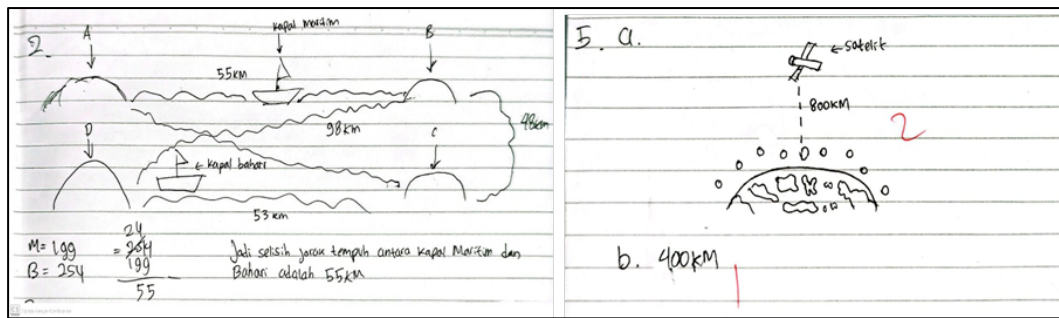 2.
A
kapal maritim
B
55km
98km
48km
D
C
← kapal bahari
53 km
M= 199
B = 254
24
= 254
199
55
Jadi selisih jarak tempuh antara kapal Maritim dan
Bahari adalah 55KM
5. a.
← satelit
800KM
2
b. 400KM
1